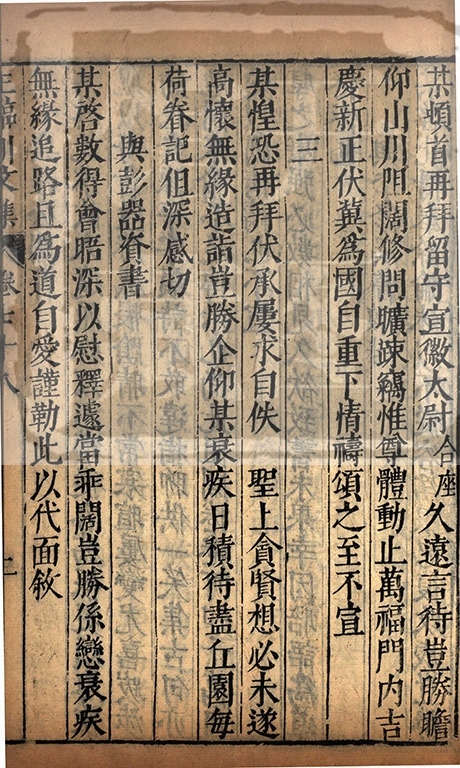 某頓首再拜留守宣徽太尉台座久遠言侍豈勝瞻
仰山川阻闊修問曠疎竊惟尊體動止萬福門內吉
慶新正伏冀為國自重下情禱頌之至不宣
三
某惶恐再拜伏承屢求自佚 聖上貪賢想必未遂
高懷無緣造詣豈勝企仰某衰疾日積待盡丘園每
荷眷記但深感切
與彭器資書
某啓數得會晤深以慰釋遽當乖闊豈勝係戀衰疾
無緣追路且為道自愛謹勒此以代面敘
王臨川文集 卷七十八 二